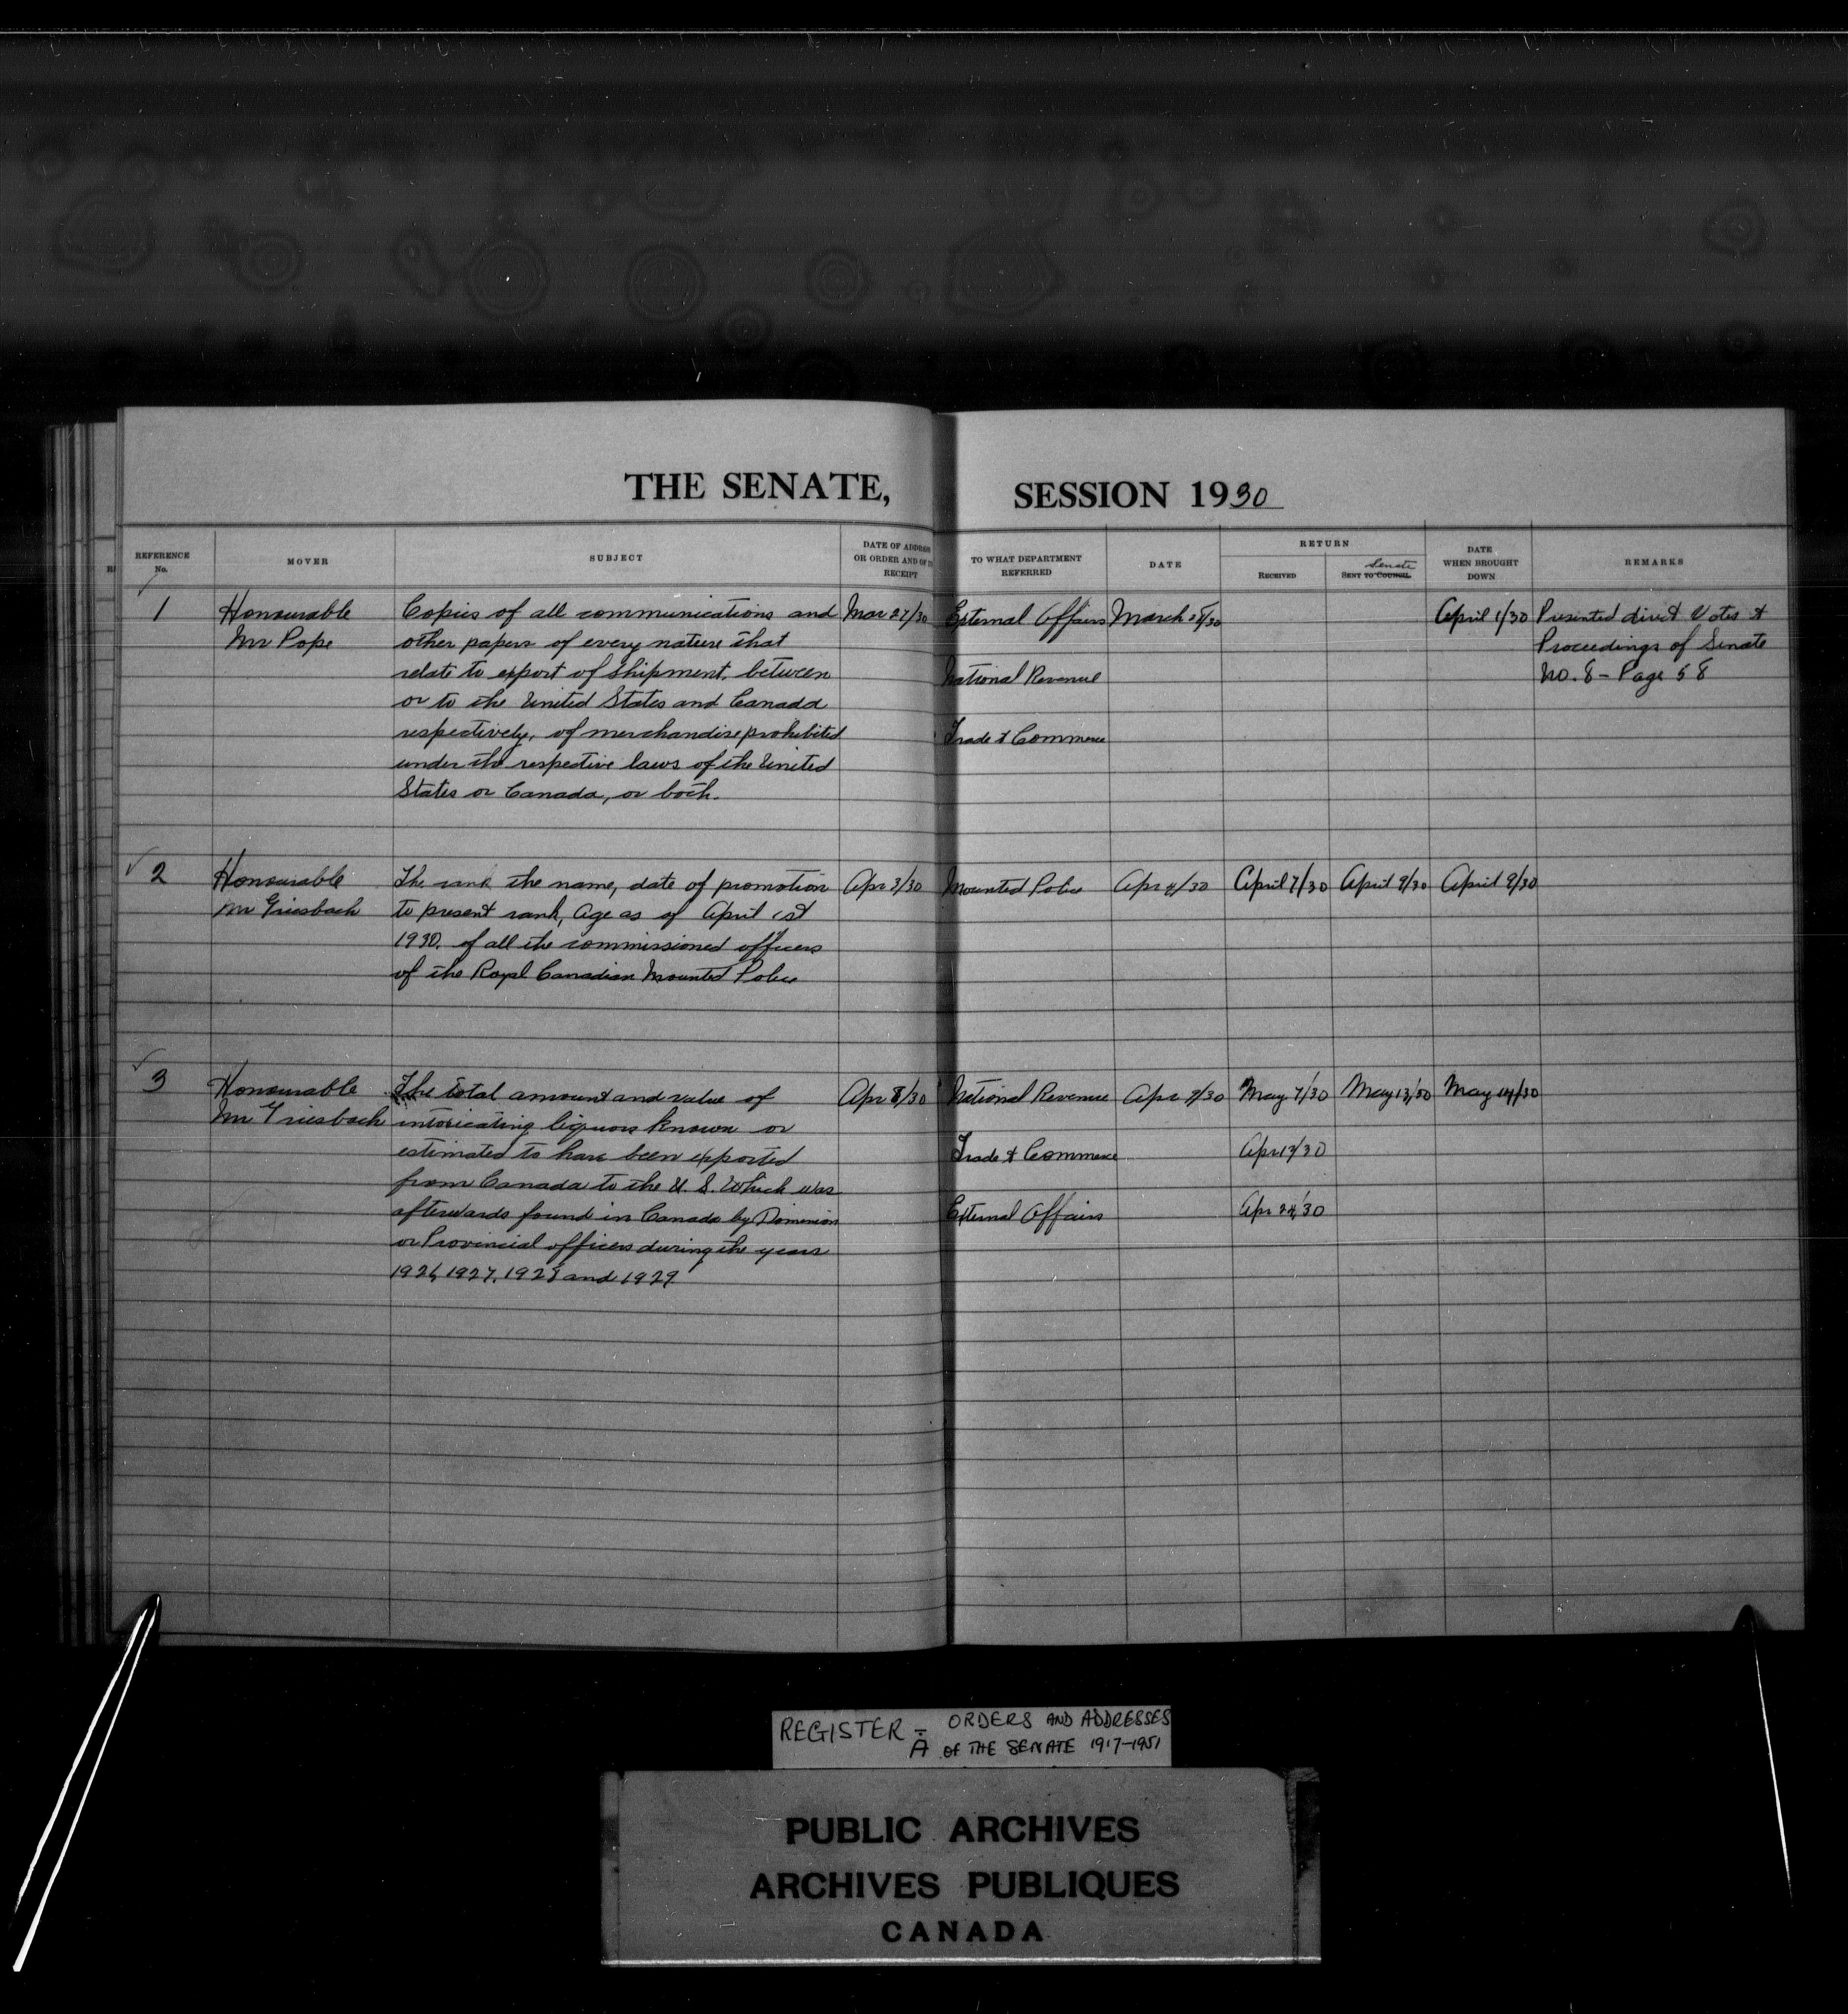 THE SENATE, SESSION 1930
REFERENCE No.
MOVER
SUBJECT
DATE OF ADDRESS OR ORDER AND OF ITS RECEIPT
TO WHAT DEPARTMENT REFERRED
DATE
RETURN
RECEIVED
Senate
SENT TO COUNCIL
DATE WHEN BROUGHT DOWN
REMARKS
1
Honourable
Mr Pope
Copies of all communications and
other papers of every nature that
relate to export of shipment, between
or to the United States and Canada
respectively, of merchandise prohibited
under the respective laws of the United
States or Canada, or both.
Mar 27/30
External Affairs
National Revenue
Trade & Commerce
March 28/30
April 1/30
Presented direct Votes &
Proceedings of Senate
No. 8 - Page 58
2
Honourable
Mr Griesbach
The rank the name, date of promotion
to present rank, Age as of April 1st
1930. of all the commissioned officers
of the Royal Canadian Mounted Police
Apr 3/30
Mounted Police
Apr 4/30
April 7/30
April 9/30
April 9/30
3
Honourable
Mr Griesbach
The total amount and value of
intoxicating liquors known or
estimated to have been exported
from Canada to the U. S. Which was
afterwards found in Canada by Dominion
or Provincial officers during the years
1926, 1927, 1928 and 1929.
Apr 8/30
National Revenue
Trade & Commerce
External Affairs
Apr 9/30
May 7/30
Apr /30
Apr 24/30
May 13/30
May 14/30
REGISTER - ORDERS AND ADDRESSES
A OF THE SENATE 1917-1951
PUBLIC ARCHIVES
ARCHIVES PUBLIQUES
CANADA